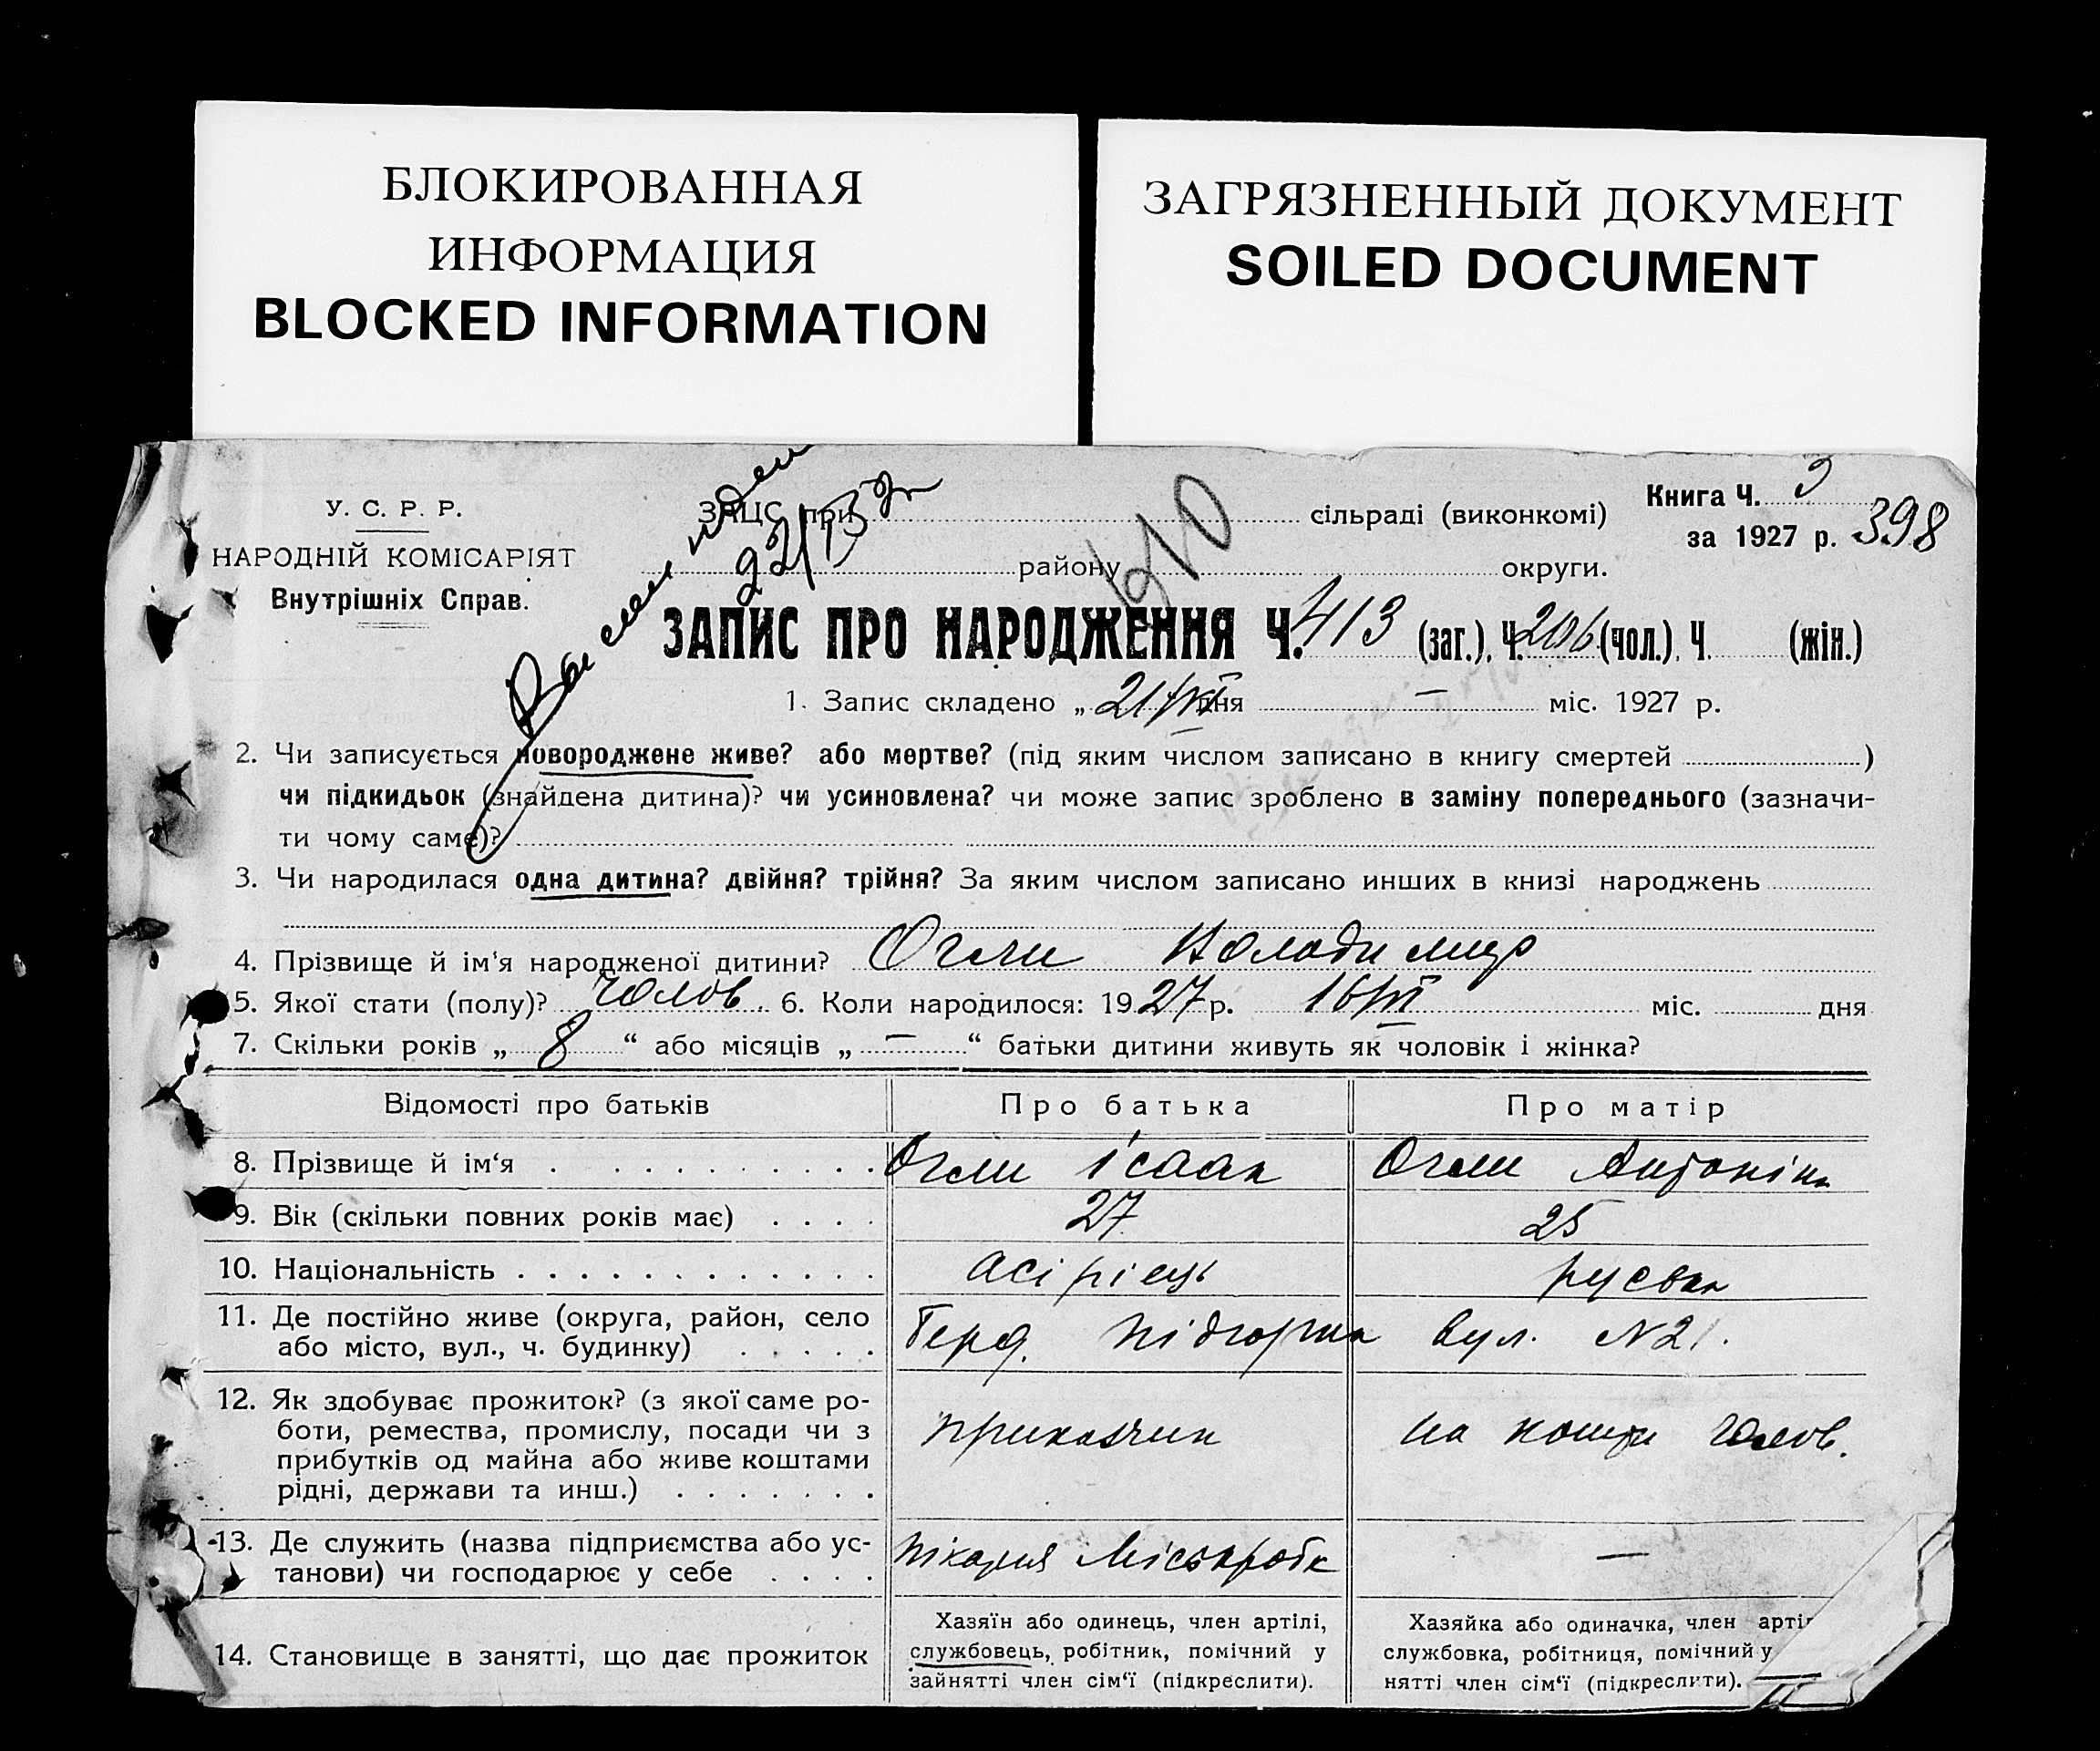 БЛОКИРОВАННАЯ
ИНФОРМАЦИЯ
BLOCKED INFORMATION
ЗАГРЯЗНЕННЫЙ ДОКУМЕНТ
SOILED DOCUMENT
У. С. Р. Р.
НАРОДНІЙ КОМІСАРІЯТ
Внутрішніх Справ.
ЗАЦС при сільраді (виконкомі)
району округи.
Книга Ч. 3
за 1927 р. 398
ЗАПИС ПРО НАРОДЖЕННЯ Ч. 413 (заг.), Ч. 206 (чол.), Ч. (жін.)
1. Запис складено „ 21/III дня — міс. 1927 р.
2. Чи записується новороджене живе? або мертве? (під яким числом записано в книгу смертей )
чи підкидьок (знайдена дитина)? чи усиновлена? чи може запис зроблено в заміну попереднього (зазначи-
ти чому саме)?
3. Чи народилася одна дитина? двійня? трійня? За яким числом записано инших в книзі народжень
4. Прізвище й ім'я народженої дитини? Огли Володимир
5. Якої стати (полу)? Чолов. 6. Коли народилося: 1927 р. 16/III міс. дня
7. Скільки років „ 8 “ або місяців „ — “ батьки дитини живуть як чоловік і жінка?
Відомості про батьків Про батька Про матір
8. Прізвище й ім‘я Огли Ісаак Огли Антоніна
9. Вік (скільки повних років має) 27 25
10. Національність асірієць руська
11. Де постійно живе (округа, район, село
або місто, вул., ч. будинку) Підгорна вул. N21.
12. Як здобуває прожиток? (з якої саме ро-
боти, ремества, промислу, посади чи з
прибутків од майна або живе коштами
рідні, держави та инш.) приказчик на кошти чолов.
13. Де служить (назва підприємства або ус-
танови) чи господарює у себе —
14. Становище в занятті, що дає прожиток
Хазяїн або одинець, член артілі,
службовець, робітник, помічний у
зайнятті член сім‘ї (підкреслити).
Хазяйка або одиначка, член арті
службовка, робітниця, помічний у
нятті член сім‘ї (підкреслити).